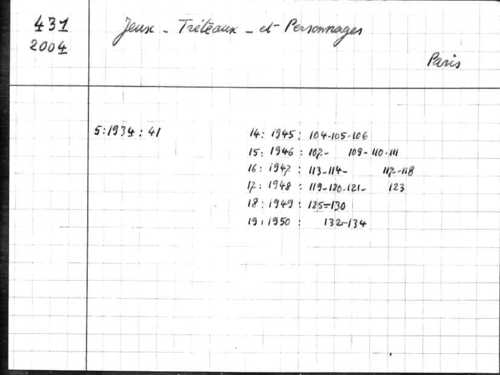 431
2004
Jeux - Tréteaux - et Personnages
Paris
5:1934: 41
14: 1945: 104-105-106
15: 1946: 107- 109-110-111
16: 1947: 113-114- 117-118
17: 1948: 119-120-121- 123
18: 1949: 125=130
19: 1950: 132-134